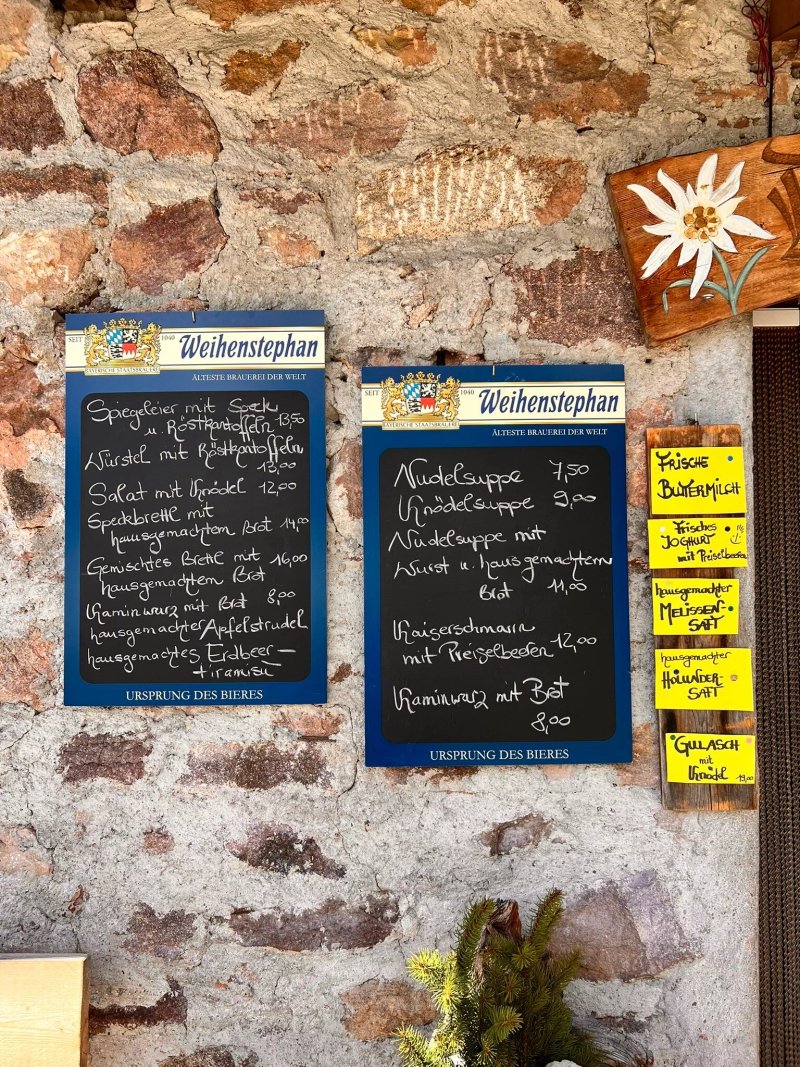 SEIT 1040
Weihenstephan
BAYERISCHE STAATSBRAUEREI
ÄLTESTE BRAUEREI DER WELT
Spiegeleier mit Speck
u. Röstkantoffeln 13,50
Würstel mit Röstkantoffeln
13,00
Salat mit Knödel 12,00
Speckbrettl mit
hausgemachtem Brot 14,00
Gemischtes Brettl mit 16,00
hausgemachtem Brot
Kaminwurz mit Brot 8,00
hausgemachter Apfelstrudel
hausgemachtes Erdbeer-
tiramisu
URSPRUNG DES BIERES
SEIT 1040
Weihenstephan
BAYERISCHE STAATSBRAUEREI
ÄLTESTE BRAUEREI DER WELT
Nudelsuppe 7,50
Knödelsuppe 9,00
Nudelsuppe mit
Wurst u. hausgemachtem
Brot 11,00
Kaiserschmarrn
mit Preiselbeeren 12,00
Kaminwurz mit Brot
8,00
URSPRUNG DES BIERES
FRISCHE
BUTTERMILCH
Frisches
JOGHURT
mit Preiselbeeren
hausgemachter
MELISSEN-
SAFT
hausgemachter
HOLUNDER-
SAFT
GULASCH
mit
Knödel 19,00